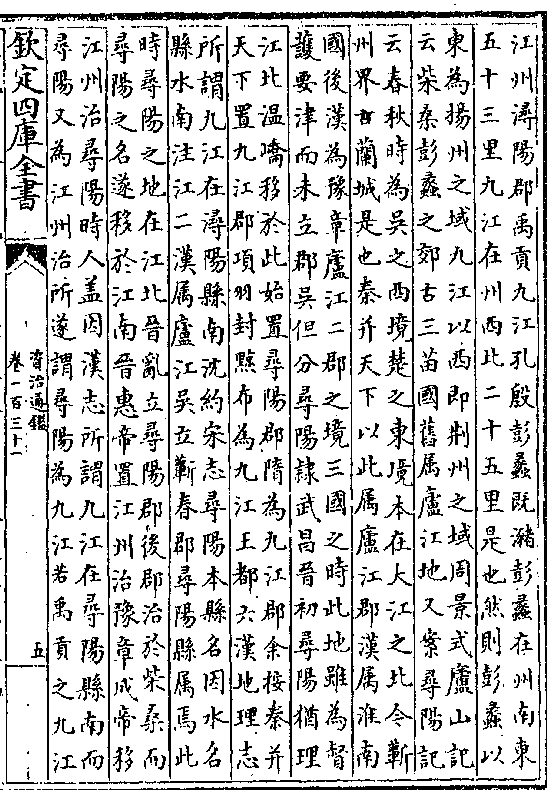 江州潯陽郡禹貢九江孔殷彭蠡既瀦彭蠡在州南東
五十三里九江在州西北二十五里是也然則彭蠡以
東為揚州之域九江以西即荆州之域周景式廬山記
云柴桑彭蠡之郊古三苗國舊属廬江地又案尋陽記
云春秋時為吳之西境楚之東境本在大江之北今蘄
州界古蘭城是也秦并天下以此属廬江郡漢属淮南
國後漢為豫章廬江二郡之境三國之時此地雖為督
護要津而未立郡吳但分尋陽隸武昌晉初尋陽猶理
江北温嶠移於此始置尋陽郡隋為九江郡余按秦并
天下置九江郡項羽封黥布為九江王都六漢地理志
所謂九江在潯陽縣南沈約宋志尋陽本縣名因水名
縣水南注江二漢属廬江吳立蘄春郡尋陽縣属焉此
時尋陽之地在江北晉亂立尋陽郡後郡治於柴桑而
尋陽之名遂移於江南晉惠帝置江州治豫章成帝移
江州治尋陽時人盖因漢志所謂九江在尋陽縣南而
尋陽又為江州治所遂謂尋陽為九江若禹貢之九江
欽定四庫全書
資治通鑑
卷一百三十一
五